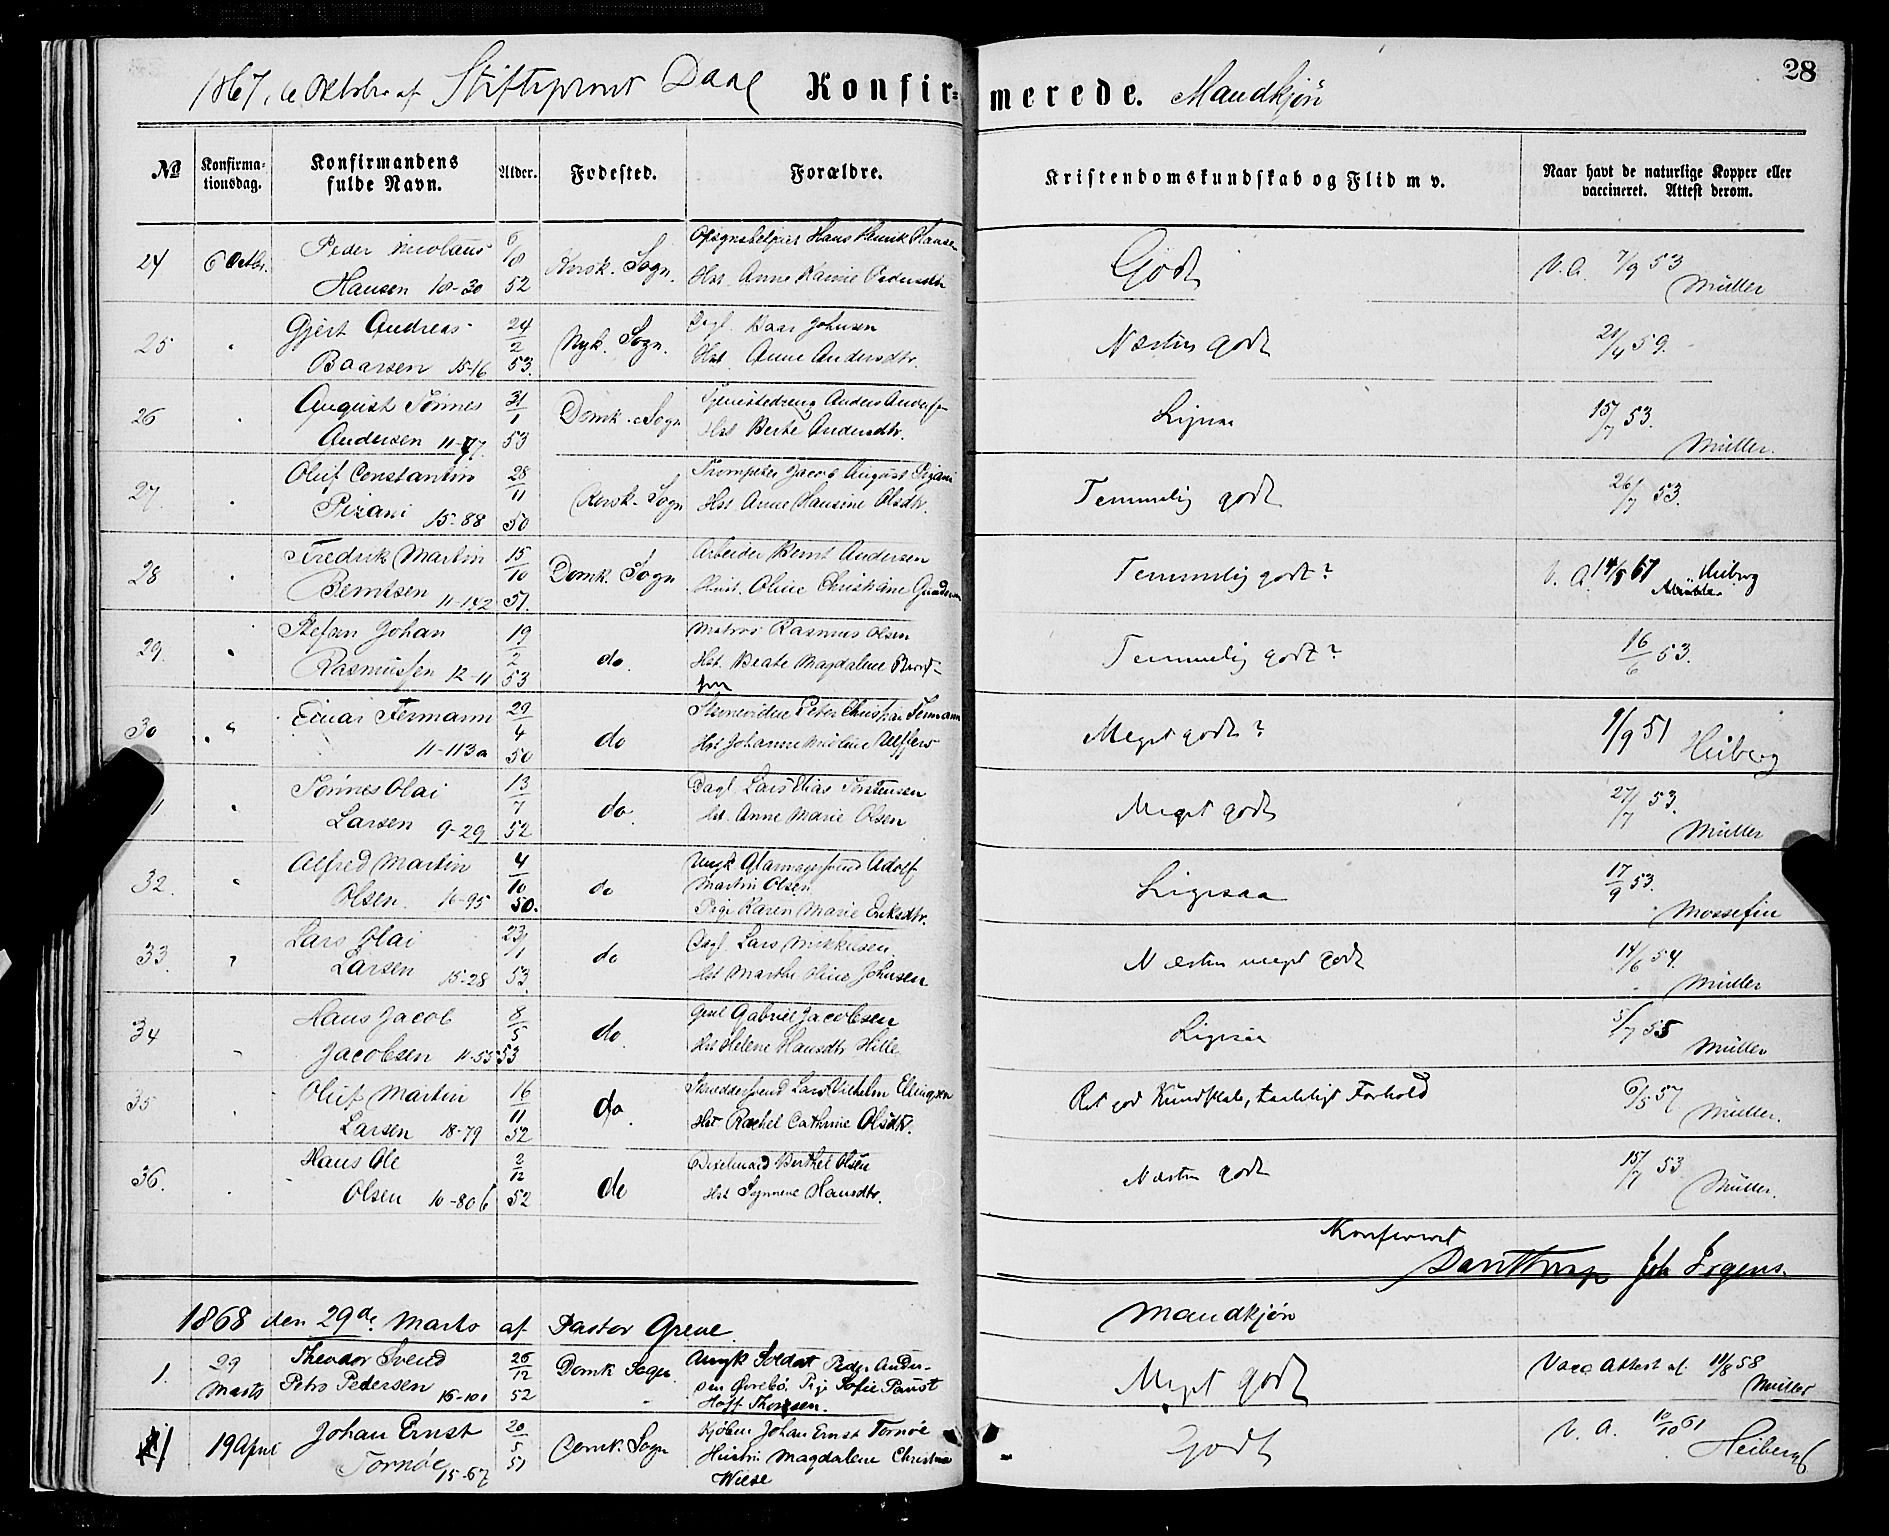 28
1867, 6 Oktober af Stiftsprovst Daae Konfirmerede. Mandkjøn
No Konfirmationsdag. Konfirmandens fulde Navn. Alder. Fødested. Forældre. Kristendomskundskab og Flid m v. Naar havt de naturlige Kopper eller vaccineret. Attest derom.
24 6 Octbr. Peder Nicolaus 6/10 Hans Henrik Hansen Godt V. A. 7/9 53
Hansen 10-30 52 Sogn. Hst. Anne Karine Pedersdtr Müller
25 " Gjert Andreas 24/2 Nyk. Sogn. Dagl. Baar Johnsen Næsten godt 21/4 59.
Baarsen 15-16 53. Hst. Anne Andersdtr.
26 " August Tönnes 31/1 Domk. Sogn Tjenestedreng Anders Anders Ligesaa 15/7 53.
Andersen 11-77 53 Hst Berte Andersdtr. Müller.
27. " Oluf Constantin 28/11 Sogn Trompeter Jacob August Pizani Temmelig godt 26/7 53.
Pizani 15-88 50 Hst Anne Hansine Olsdtr.
28 " Fredrik Martin 15/10 Domk. Sogn Arbeider Bernt Andersen Temmelig godt? V. A. 14/5 67 Heiberg
Berntsen 11-142 51. Hust. Oline Christiane
29. " Stefen Johan 19/2 do. Matros Rasmus Olsen Temmelig godt? 16/6 53.
Rasmussen 12-11 53 Hst. Beate Magdalene
30 " Einar Fermann 29/4 do Peter Christian Fermann Meget godt? 9/9 51
11-113a 50 Hst Johanne Heiberg
" Tönnes Olai 13/7 do. Dagl Lars Elias Torstensen Meget godt 27/7 53.
Larsen 9-29 52 Hst. Anne Marie Olsen Müller
32. " Alfred Martin 4/10 do Ungk Adolf
Martin Olsen Ligesaa 17/9 53.
Olsen 16-95 50. Pige Karen Marie Eriksdtr.
33. " Lars Olai 23/1 do Dagl. Lars Mikkelsen Næsten meget godt 14/6 54.
Larsen 15-28 53. Hst Marthe Oline Johnsen Müller
34 " Hans Jacob 8/5 do. Gabriel Jacobsen Ligesaa 5/7 55
Jacobsen 11-55 53 Hst Helene Hansdtr Hille Müller
35 Oluf Martin 16/11 do. Skræddersvend Lars Vilhelm Ellingsen Ret god Kundskab, Forhold 6/5 57
Larsen 18-79 52 Hst Rachel Cathrine Olsdtr. Müller.
36. " Hans Ole 2/12 do Berthel Olsen Næsten godt 15/7 53
Olsen 10-80b 52 Hst Synneve Hansdtr. Müller.
1868 den 29de Marts af Pastor Greve. Mandkjøn
1. 29 Theodor Svend 26/12 Domk Sogn Ungk Soldat Peder Ander-
Marts Petro Pedersen 15-101 52 sen Øvrebö. Pige Sofie Paust Meget godt Vacc Attest af 11/8 58 Müller
Hoff Thomsen.
1 19 April Johan Ernst 20/5 Domk. Sogn Kjöbm Johan Ernst Tornöe Godt V. A. 12/10 61
Tornöe 15-67 51 Hustru Magdalene Christine Heiberg
Wiese